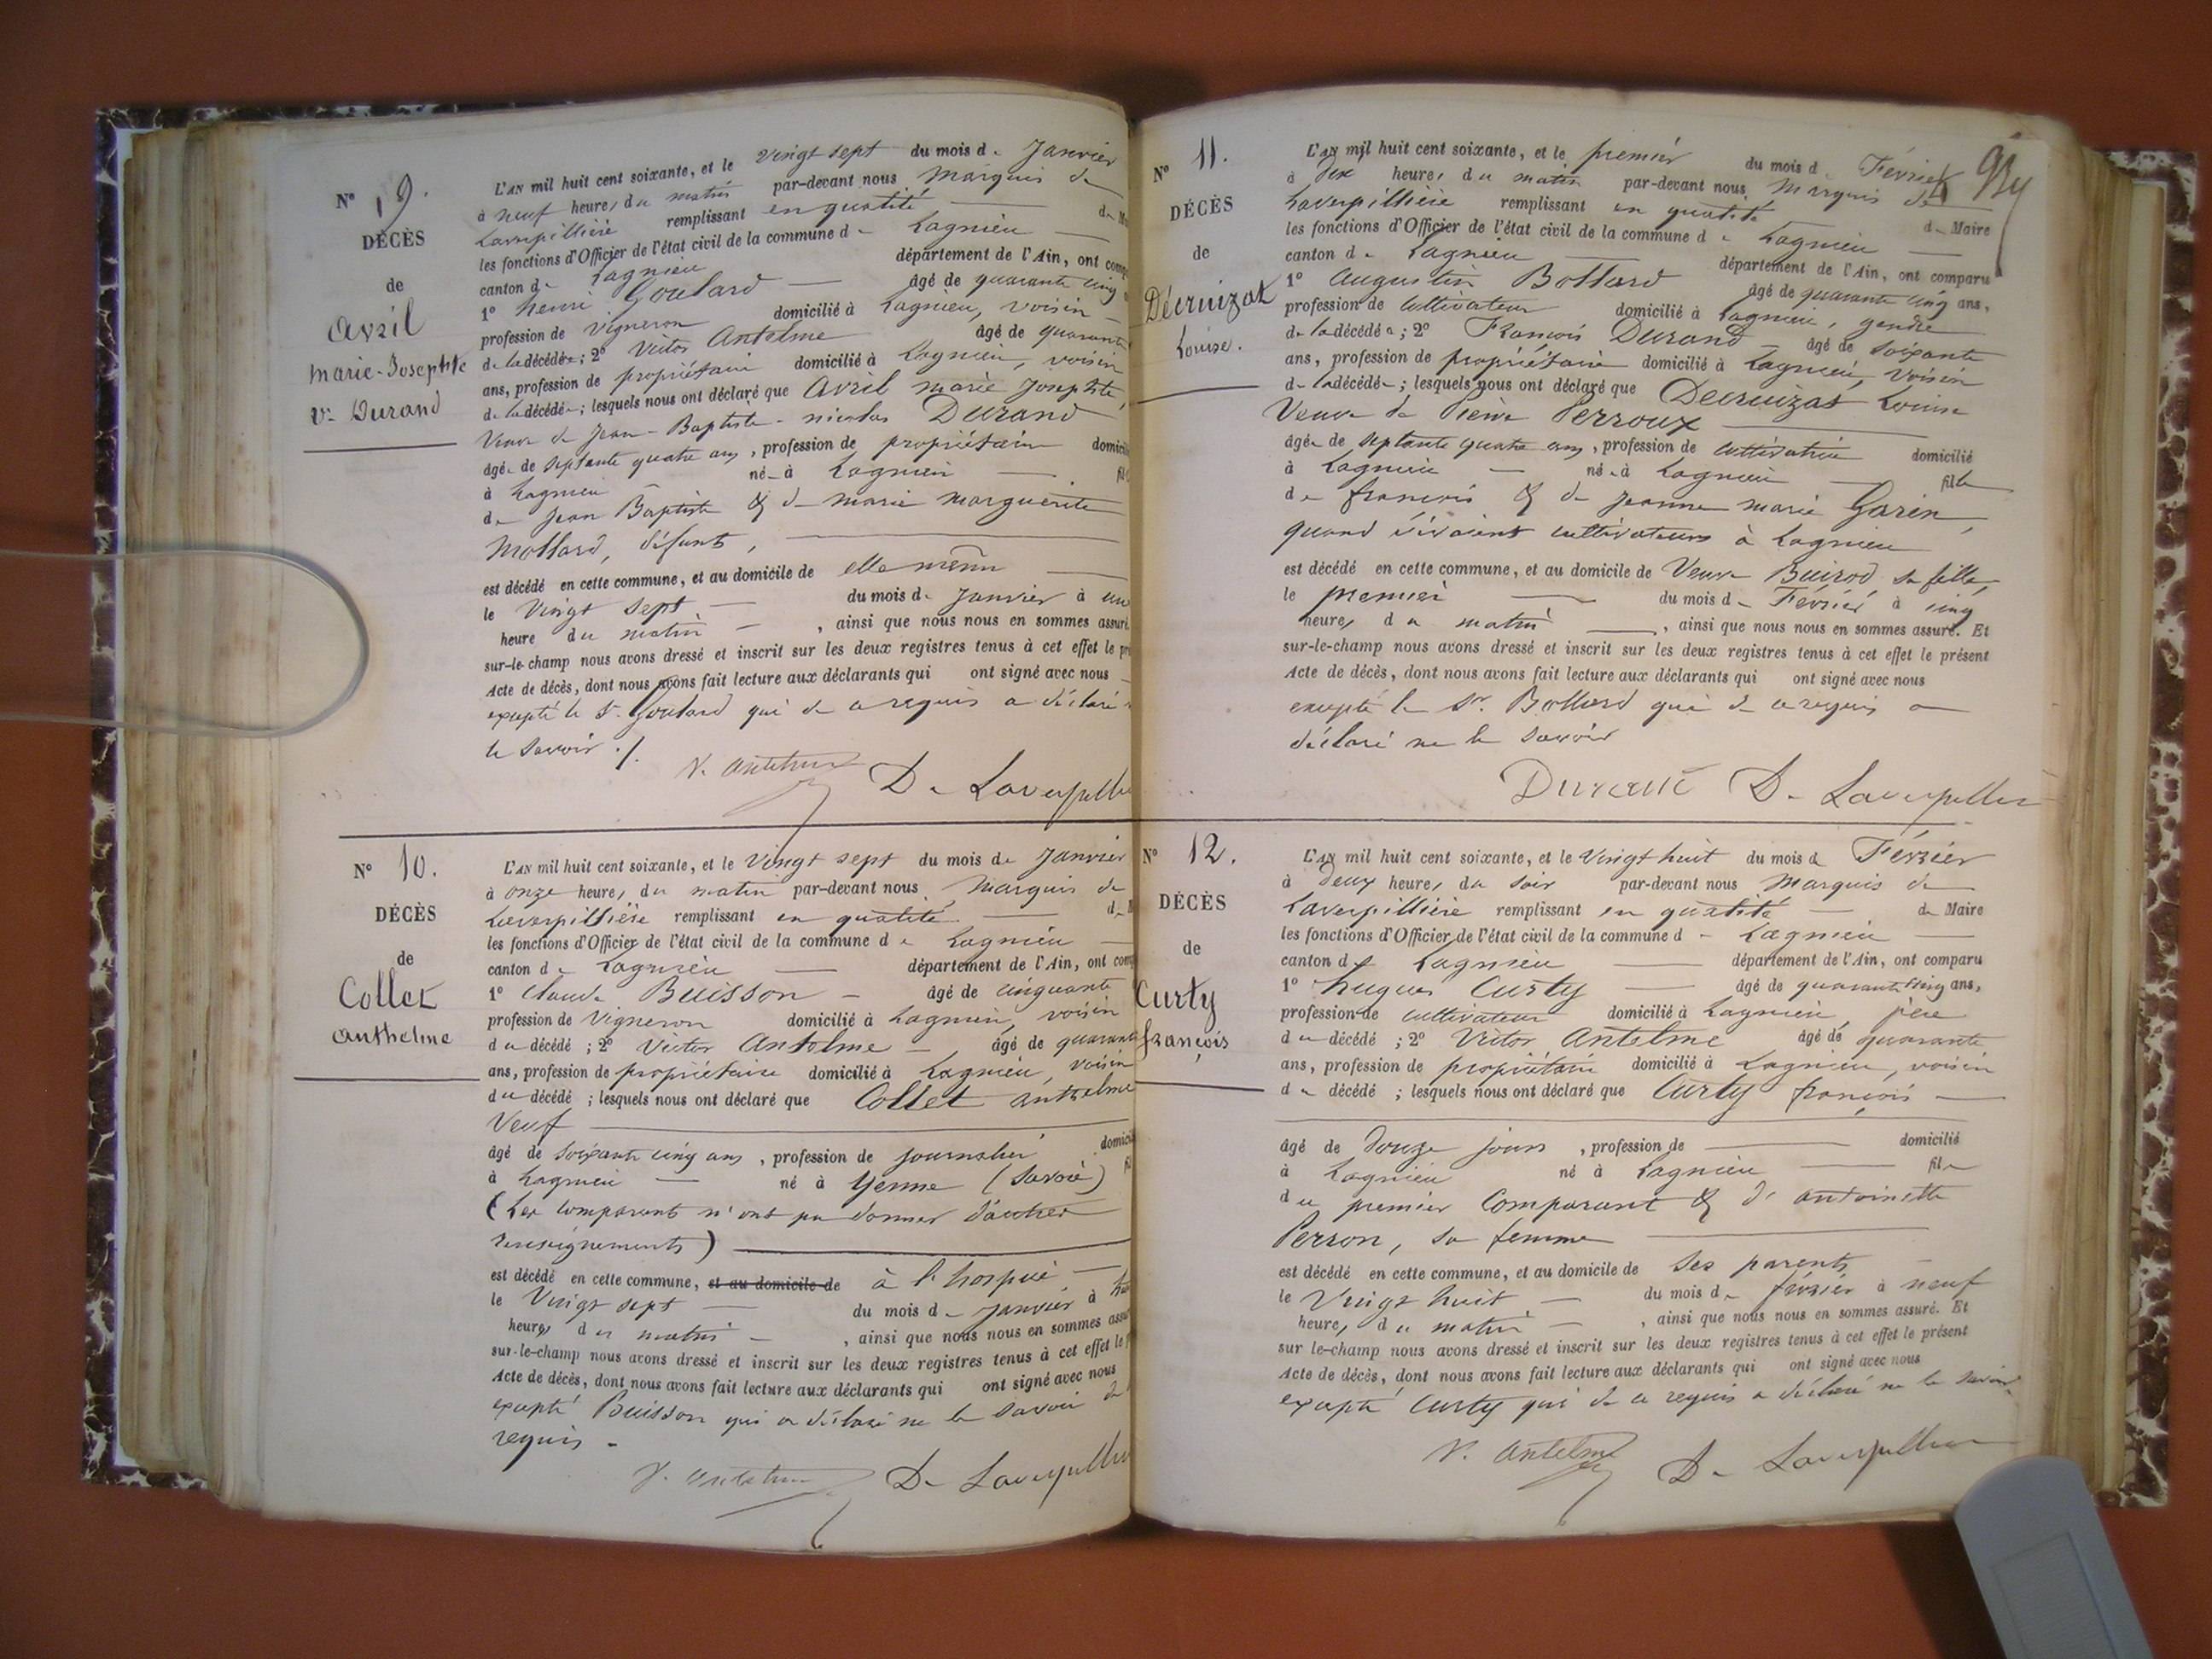 N° 9.
DÉCÈS
de
Avril
Marie-Josephte
Ve Durand
L'AN mil huit cent soixante, et le Vingt sept du mois de Janvier
à neuf heures du matin par-devant nous Marquis de
Laverpillière remplissant en qualité de
les fonctions d'Officier de l'état civil de la commune de Lagnieu
canton de Lagnieu département de l'Ain, ont
1° henri Goulard âgé de quarante cinq
profession de Vigneron domicilié à Lagnieu, voisin
de la décédée; 2° Victor Antelme âgé de quarante
ans, profession de propriétaire domicilié à Lagnieu, voisin
de la décédée; lesquels nous ont déclaré que Avril marie Josephte,
Veuve de Jean-Baptiste-nicolas Durand
âgée de septante quatre ans, profession de propriétaire
à Lagnieu née à Lagnieu
de Jean Baptiste & de marie marguerite
Mollard, défunts,
est décédé en cette commune, et au domicile de elle même
le Vingt sept du mois de Janvier à une
heure du matin, ainsi que nous nous en sommes assuré.
sur-le-champ nous avons dressé et inscrit sur les deux registres tenus à cet effet le
Acte de décès, dont nous avons fait lecture aux déclarants qui ont signé avec nous
excepté le Sr. Goulard qui de ce requis a déclaré
le savoir ./.
V. Antelme De Laverpillière
N° 10.
DÉCÈS
de
Collet
anthelme
L'AN mil huit cent soixante, et le Vingt sept du mois de Janvier
à onze heures du matin par-devant nous Marquis de
Laverpillière remplissant en qualité de
les fonctions d'Officier de l'état civil de la commune de Lagnieu
canton de Lagnieu département de l'Ain, ont
1° Claude Buisson âgé de cinquante
profession de Vigneron domicilié à Lagnieu, voisin
du décédé; 2° Victor Antelme âgé de quarante
ans, profession de propriétaire domicilié à Lagnieu, voisin
du décédé; lesquels nous ont déclaré que Collet anthelme
Veuf
âgé de soixante cinq ans, profession de journalier
à Lagnieu né à Yenne (Savoie)
(Les comparants n'ont pu donner d'autres
renseignements)
est décédé en cette commune, et au domicile de à l'hospice
le Vingt sept du mois de Janvier à
heures du matin, ainsi que nous nous en sommes
sur-le-champ nous avons dressé et inscrit sur les deux registres tenus à cet effet le
Acte de décès, dont nous avons fait lecture aux déclarants qui ont signé avec nous
excepté Buisson qui a déclaré ne le savoir de
requis.
V. Antelme De Laverpillière
N° 11.
DÉCÈS
de
Décruizat
Louise.
L'AN mil huit cent soixante, et le premier du mois de Février
à dix heures du matin par-devant nous Marquis de
Laverpillière remplissant en qualité de Maire
les fonctions d'Officier de l'état civil de la commune de Lagnieu
canton de Lagnieu département de l'Ain, ont comparu
1° Augustin Bottard âgé de quarante cinq ans,
profession de cultivateur domicilié à Lagnieu, gendre
de la décédée; 2° François Durand âgé de soixante
ans, profession de propriétaire domicilié à Lagnieu, voisin
de la décédée; lesquels nous ont déclaré que Decruizat Louise
Veuve de Pierre Perroux
âgée de septante quatre ans, profession de cultivatrice domicilié
à Lagnieu née à Lagnieu fille
de françois & de Jeanne marie Garin,
quand vivaient cultivateurs à Lagnieu
est décédé en cette commune, et au domicile de Veuve Buirod sa fille,
le premier du mois de Février à cinq
heures du matin, ainsi que nous nous en sommes assuré. Et
sur-le-champ nous avons dressé et inscrit sur les deux registres tenus à cet effet le présent
Acte de décès, dont nous avons fait lecture aux déclarants qui ont signé avec nous
excepté le Sr. Bottard qui de ce requis a
déclaré ne le savoir
Durand De Laverpillière
N° 12.
DÉCÈS
de
Curty
françois
L'AN mil huit cent soixante, et le Vingt huit du mois de Février
à Deux heures du soir par-devant nous Marquis de
Laverpillière remplissant en qualité de Maire
les fonctions d'Officier de l'état civil de la commune de Lagnieu
canton de Lagnieu département de l'Ain, ont comparu
1° hugues Curty âgé de quarante cinq ans,
profession de cultivateur domicilié à Lagnieu, père
du décédé; 2° Victor Antelme âgé de quarante
ans, profession de propriétaire domicilié à Lagnieu, voisin
du décédé; lesquels nous ont déclaré que Curty françois
âgé de Douze jours, profession de domicilié
à Lagnieu né à Lagnieu fils
du premier Comparant & d'antoinette
Perron, sa femme
est décédé en cette commune, et au domicile de ses parents
le Vingt huit du mois de février à neuf
heures du matin, ainsi que nous nous en sommes assuré. Et
sur le-champ nous avons dressé et inscrit sur les deux registres tenus à cet effet le présent
Acte de décès, dont nous avons fait lecture aux déclarants qui ont signé avec nous
excepté Curty qui de ce requis a déclaré ne le savoir
V. Antelme De Laverpillière